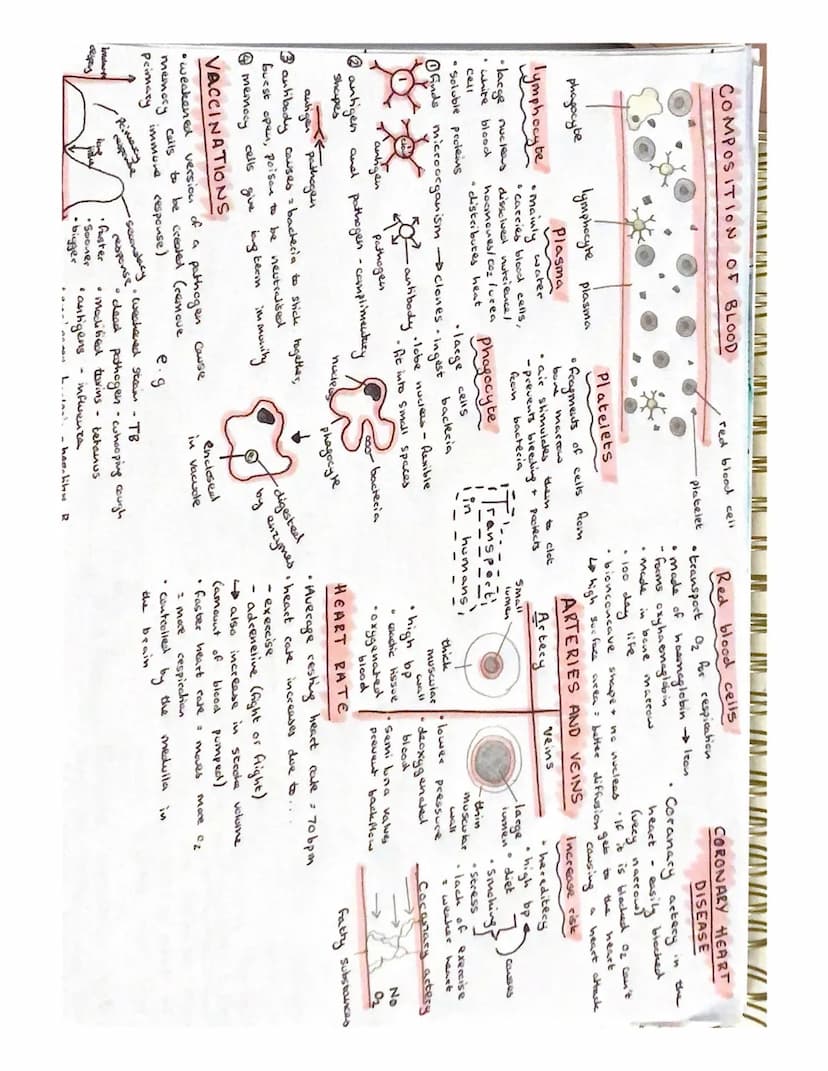 COMPOSITION OF BLOOD
red blood cell
platelet
phagocyte
lymphocyte
plasma
Lymphocyte
• large nucleus
• white blood
cell
• soluble proteins
Plasma
• mainly water
• carries blood cells,
dissolved nutrience/
hormones/CO2/urea
• distributes heat
Platelets
• fragments of cells from
bone marrow
• air stimulates them to clot
- prevents bleeding + protects
from bacteria
① finds microorganism → clones
antigen
antibody
pathogen
② antigen and pathogen - complimentary
shapes
antigen
pathogen
③ antibody causes = bacteria to stick together,
burst open, poison to be neutralised
④ memory cells give long term immunity
Phagocyte
• large cells
• ingest bacteria
• lobe nucleus - flexible
• fit into small spaces
nucleus
bacteria
phagocyte
digested
by
enzymes
enclosed
in vacuole
VACCINATIONS
• weakened version of a pathogen cause
memory cells to be created (remove
primary immune response)
primary
response
secondary
response
• faster
• sooner
• bigger
e.g
• weakened strain - TB
• dead pathogen - whooping cough
• modified toxins - tetanus
• antigens - influenza
Transport
in humans
Red blood cells
• transport O2 for respiration
• made of haemoglobin → Iron
- forms oxyhaemoglobin
• made in bone marrow
• 100 day life
• bionconcave shape + no nucleus
↳ high surface area = better diffusion
ARTERIES AND VEINS
Artery
small
lumen
thick
muscular
wall
• high bp
• elastic tissue
• oxygenated
blood
Veins
large
lumen
thin
muscular
wall
• lower pressure
• deoxygenated
blood
• semi luna valves
prevent backflow
HEART RATE
• Average resting heart rate = 70bpm
• heart rate increases due to...
- exercise
- adreneline (fight or flight)
↳ also increase in stroke volume
(amount of blood pumped)
• faster heart rate = moves more O2
= more respiration
• controlled by the medulla in
the brain
CORONARY HEART
DISEASE
• Coranary artery in the
heart - easily blocked
(very narrow)
• If it is blocked O2 can't
get to the heart
causing a heart attack
Increase risk
• hereditery
• high bp
• diet
• smoking
• stress
causes
• lack of exercise
= weaker heart
Coronary artery
No
O2
Fatty substances